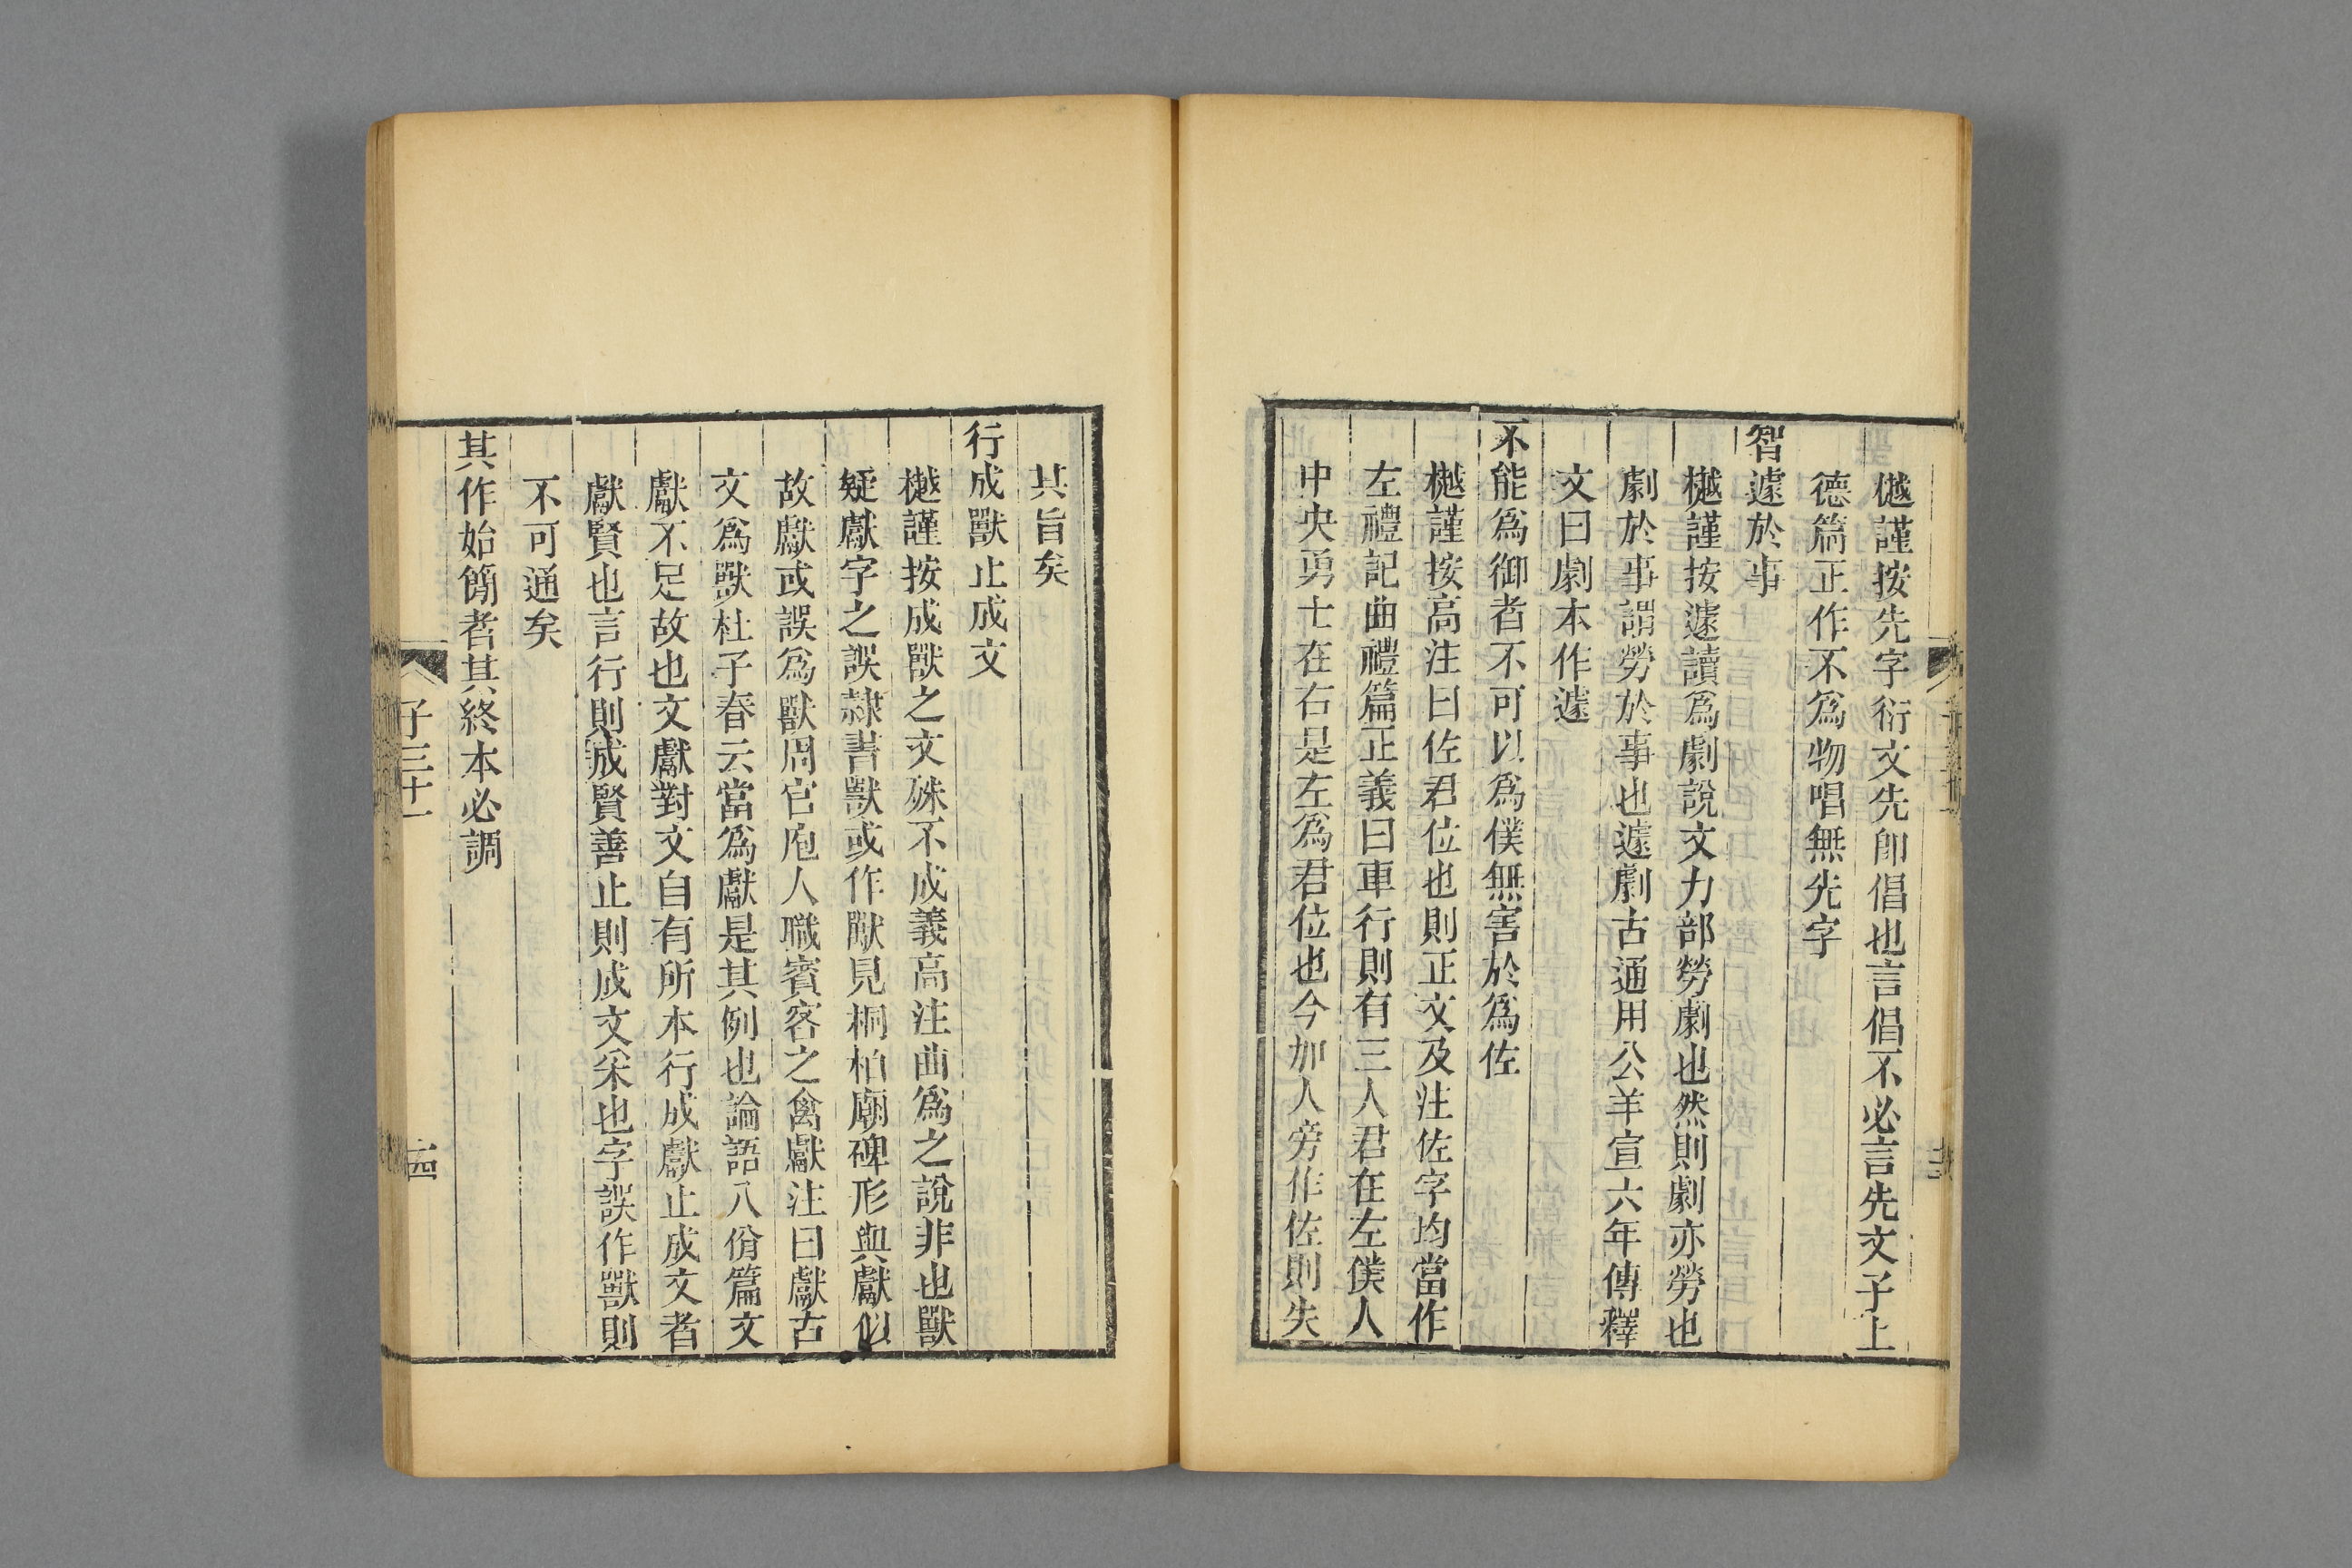 樾謹按先字衍文先卽倡也言倡不必言先文子上
德篇正作不爲物唱無先字
智遽於事
樾謹按遽讀爲劇說文力部勞劇也然則劇亦勞也
劇於事謂勞於事也遽劇古通用公羊宣六年傳釋
文曰劇本作遽
不能爲御者不可以爲僕無害於爲佐
樾謹按高注曰佐君位也則正文及注佐字均當作
左禮記曲禮篇正義曰車行則有三人君在左僕人
中央勇士在右是左爲君位也今加人旁作佐則失
其旨矣
行成獸止成文
樾謹按成獸之文殊不成義高注曲爲之說非也獸
疑獻字之誤隸書獸或作獣見桐柏廟碑形與獻似
故獻或誤爲獸周官庖人職賓客之禽獻注曰獻古
文爲獸杜子春云當爲獻是其例也論語八佾篇文
獻不足故也文獻對文自有所本行成獻止成文者
獻賢也言行則成賢善止則成文采也字誤作獸則
不可通矣
其作始簡者其終本必調
子三十一
十四